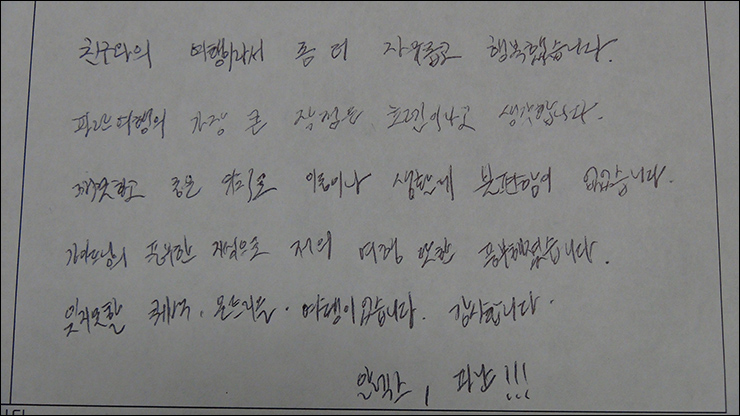 친구와의 여행이라서 좀 더 자유롭고 행복했습니다.
파란여행의 가장 큰 장점은 호텔이라고 생각합니다.
깨끗하고 좋은 위치로 이동이나 생활에 불편함이 없었습니다.
가이드님의 풍부한 지식으로 저의 여행 또한 풍부해졌습니다.
잊지못할 퀘벡, 몬트리올. 여행이었습니다. 감사합니다.
파란!!!